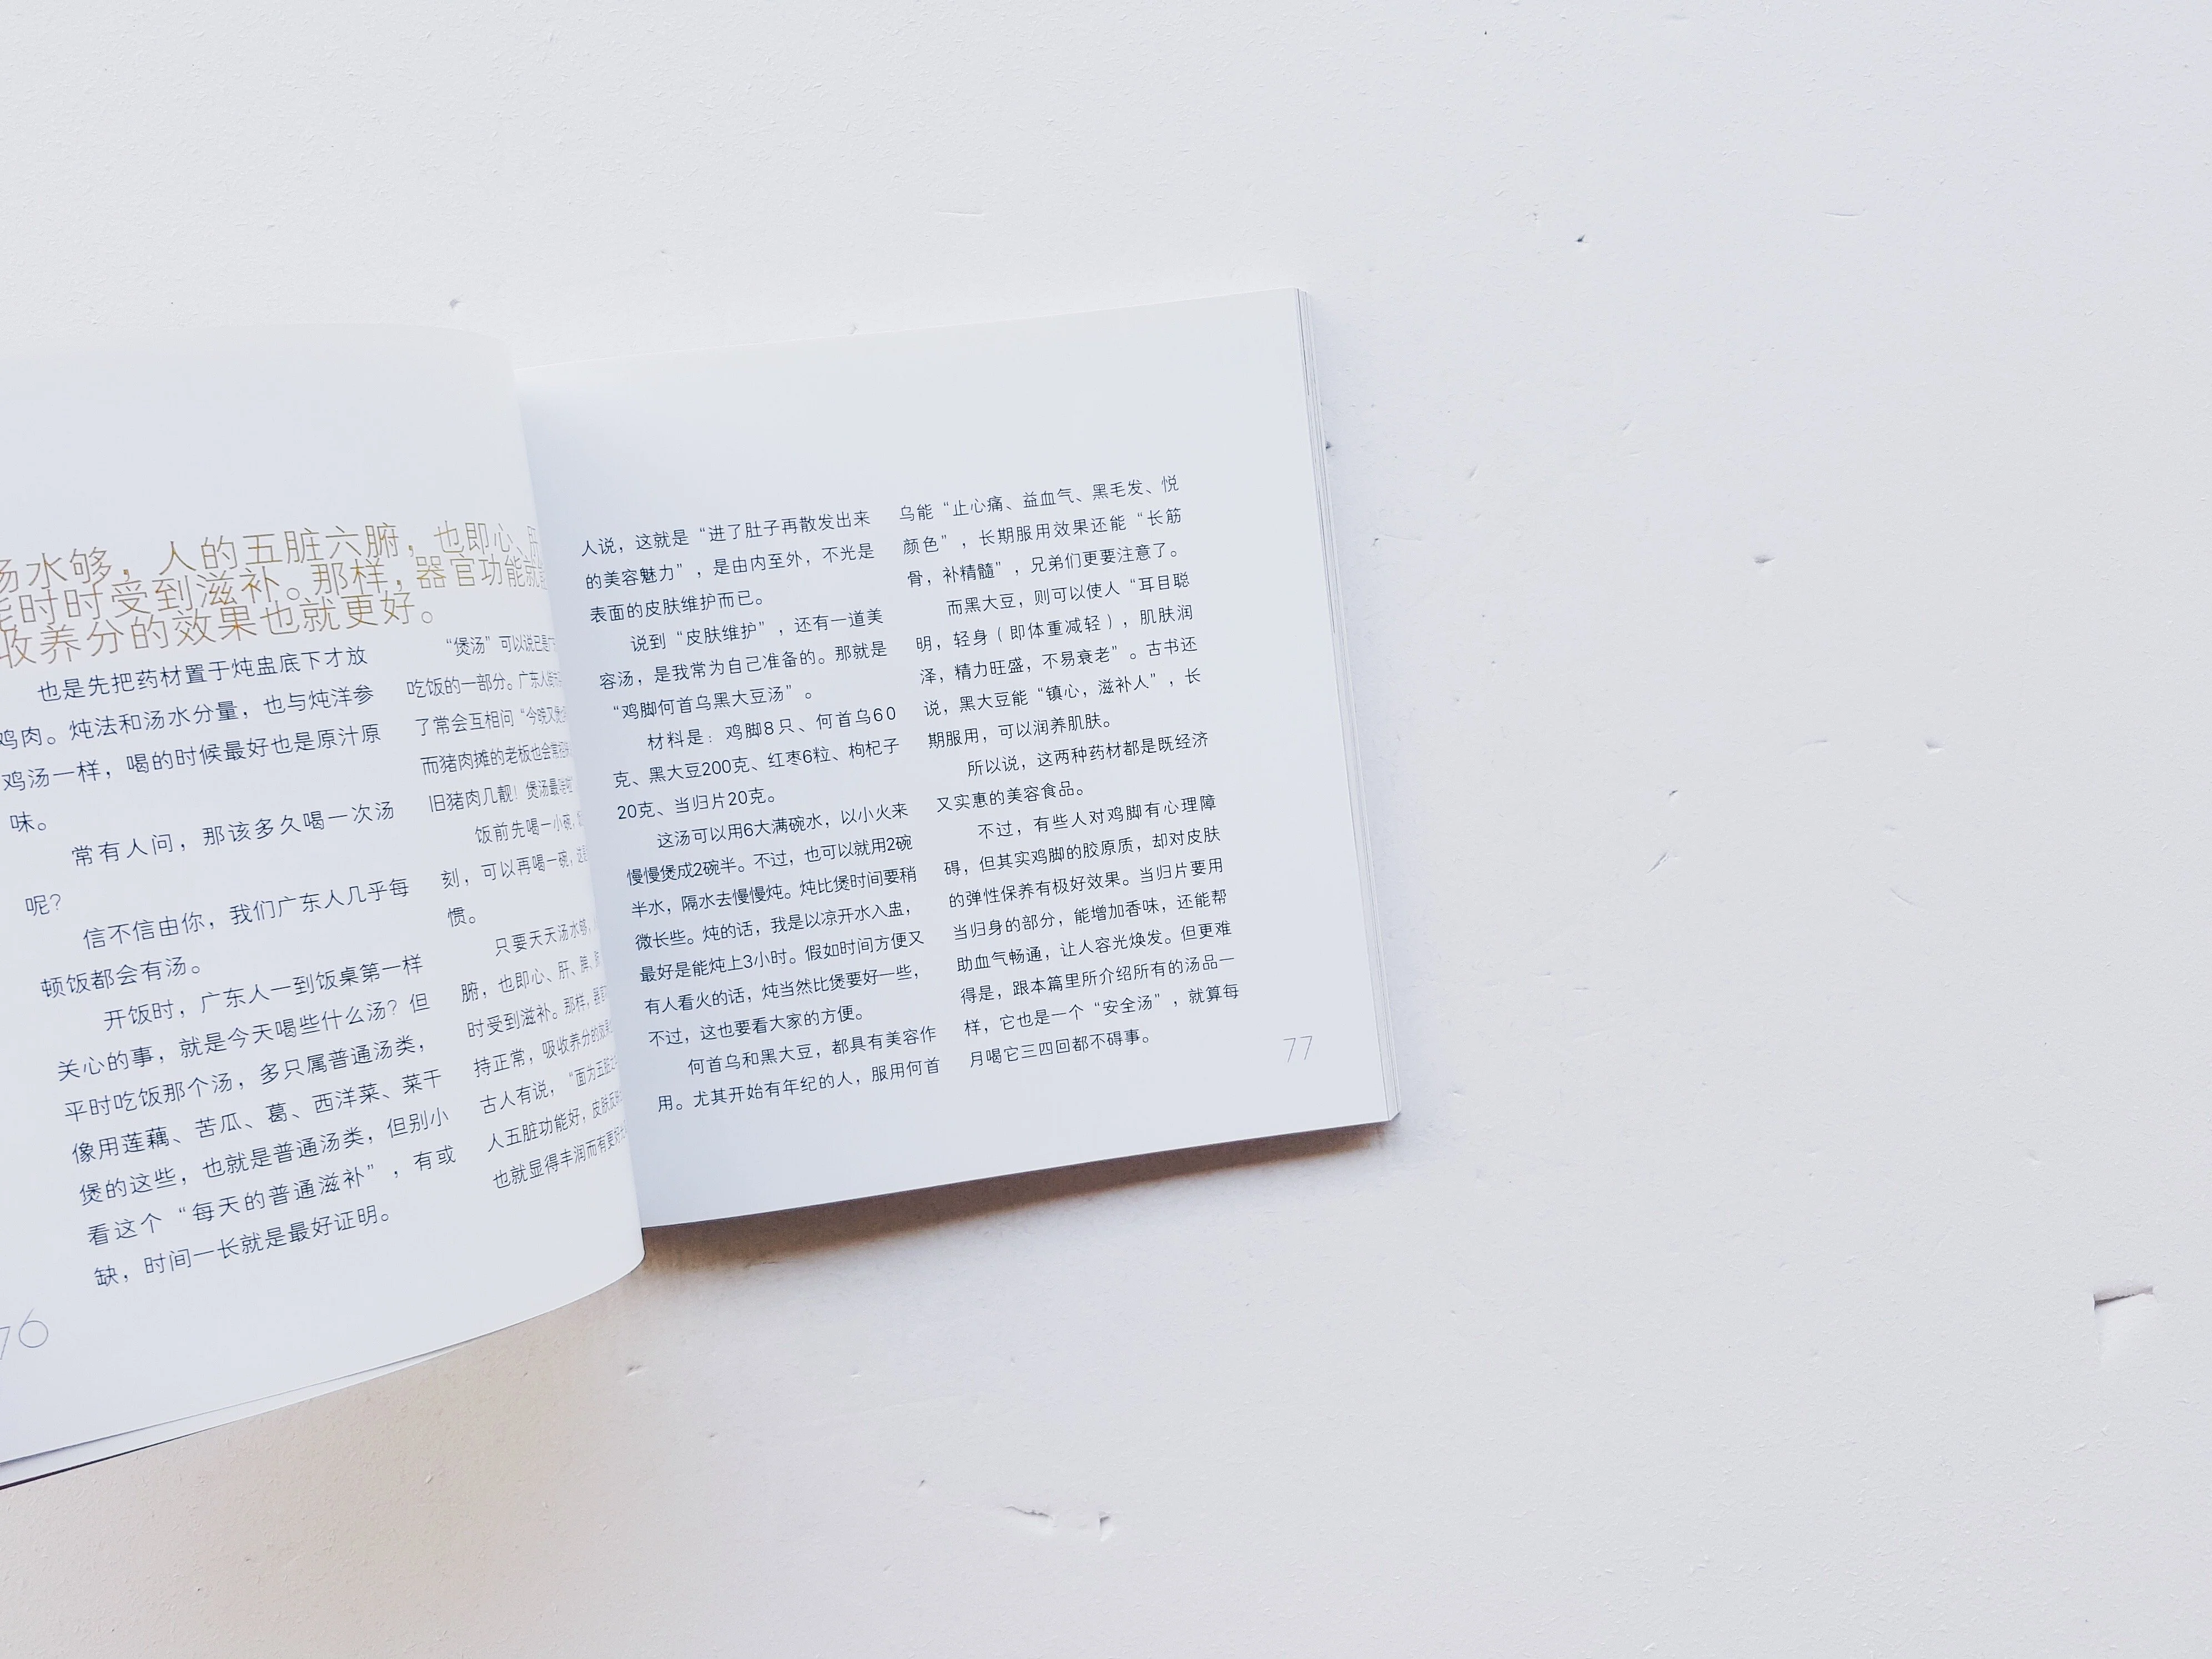 汤水够，人的五脏六腑，也即心、肝
能时时受到滋补。那样，器官功能就
收养分的效果也就更好。
也是先把药材置于炖盅底下才放
鸡肉。炖法和汤水分量，也与炖洋参
鸡汤一样，喝的时候最好也是原汁原
味。
常有人问，那该多久喝一次汤
呢？
信不信由你，我们广东人几乎每
顿饭都会有汤。
开饭时，广东人一到饭桌第一样
关心的事，就是今天喝些什么汤？但
平时吃饭那个汤，多只属普通汤类，
像用莲藕、苦瓜、葛、西洋菜、菜干
煲的这些，也就是普通汤类，但别小
看这个“每天的普通滋补”，有或
缺，时间一长就是最好证明。
76
“煲汤”可以说已是广
吃饭的一部分。广东人街市
了常会互相问“今晚又煲
而猪肉摊的老板也会常
旧猪肉几靓！煲汤最
饭前先喝一小碗，
刻，可以再喝一碗，这
惯。
只要天天汤水够，
腑，也即心、肝、脾、
时受到滋补。那样，器
持正常，吸收养分的效果
古人有说，“面为五脏之
人五脏功能好，皮肤反
也就显得丰润而有更好
人说，这就是“进了肚子再散发出来
的美容魅力”，是由内至外，不光是
表面的皮肤维护而已。
说到“皮肤维护”，还有一道美
容汤，是我常为自己准备的。那就是
“鸡脚何首乌黑大豆汤”。
材料是：鸡脚8只、何首乌60
克、黑大豆200克、红枣6粒、枸杞子
20克、当归片20克。
这汤可以用6大满碗水，以小火来
慢慢煲成2碗半。不过，也可以就用2碗
半水，隔水去慢慢炖。炖比煲时间要稍
微长些。炖的话，我是以凉开水入盅，
最好是能炖上3小时。假如时间方便又
有人看火的话，炖当然比煲要好一些，
不过，这也要看大家的方便。
何首乌和黑大豆，都具有美容作
用。尤其开始有年纪的人，服用何首
乌能“止心痛、益血气、黑毛发、悦
颜色”，长期服用效果还能“长筋
骨，补精髓”，兄弟们更要注意了。
而黑大豆，则可以使人“耳目聪
明，轻身（即体重减轻），肌肤润
泽，精力旺盛，不易衰老”。古书还
说，黑大豆能“镇心，滋补人”，长
期服用，可以润养肌肤。
所以说，这两种药材都是既经济
又实惠的美容食品。
不过，有些人对鸡脚有心理障
碍，但其实鸡脚的胶原质，却对皮肤
的弹性保养有极好效果。当归片要用
当归身的部分，能增加香味，还能帮
助血气畅通，让人容光焕发。但更难
得是，跟本篇里所介绍所有的汤品一
样，它也是一个“安全汤”，就算每
月喝它三四回都不碍事。
77